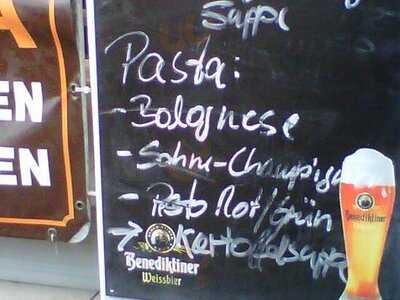 Suppe
Pasta:
- Bolognese
- Sahne-Champig
- Pesto Rot/Grün
→ Kartoffelsuppe
Benediktiner
Weissbier
Benediktiner
A
EN
EN